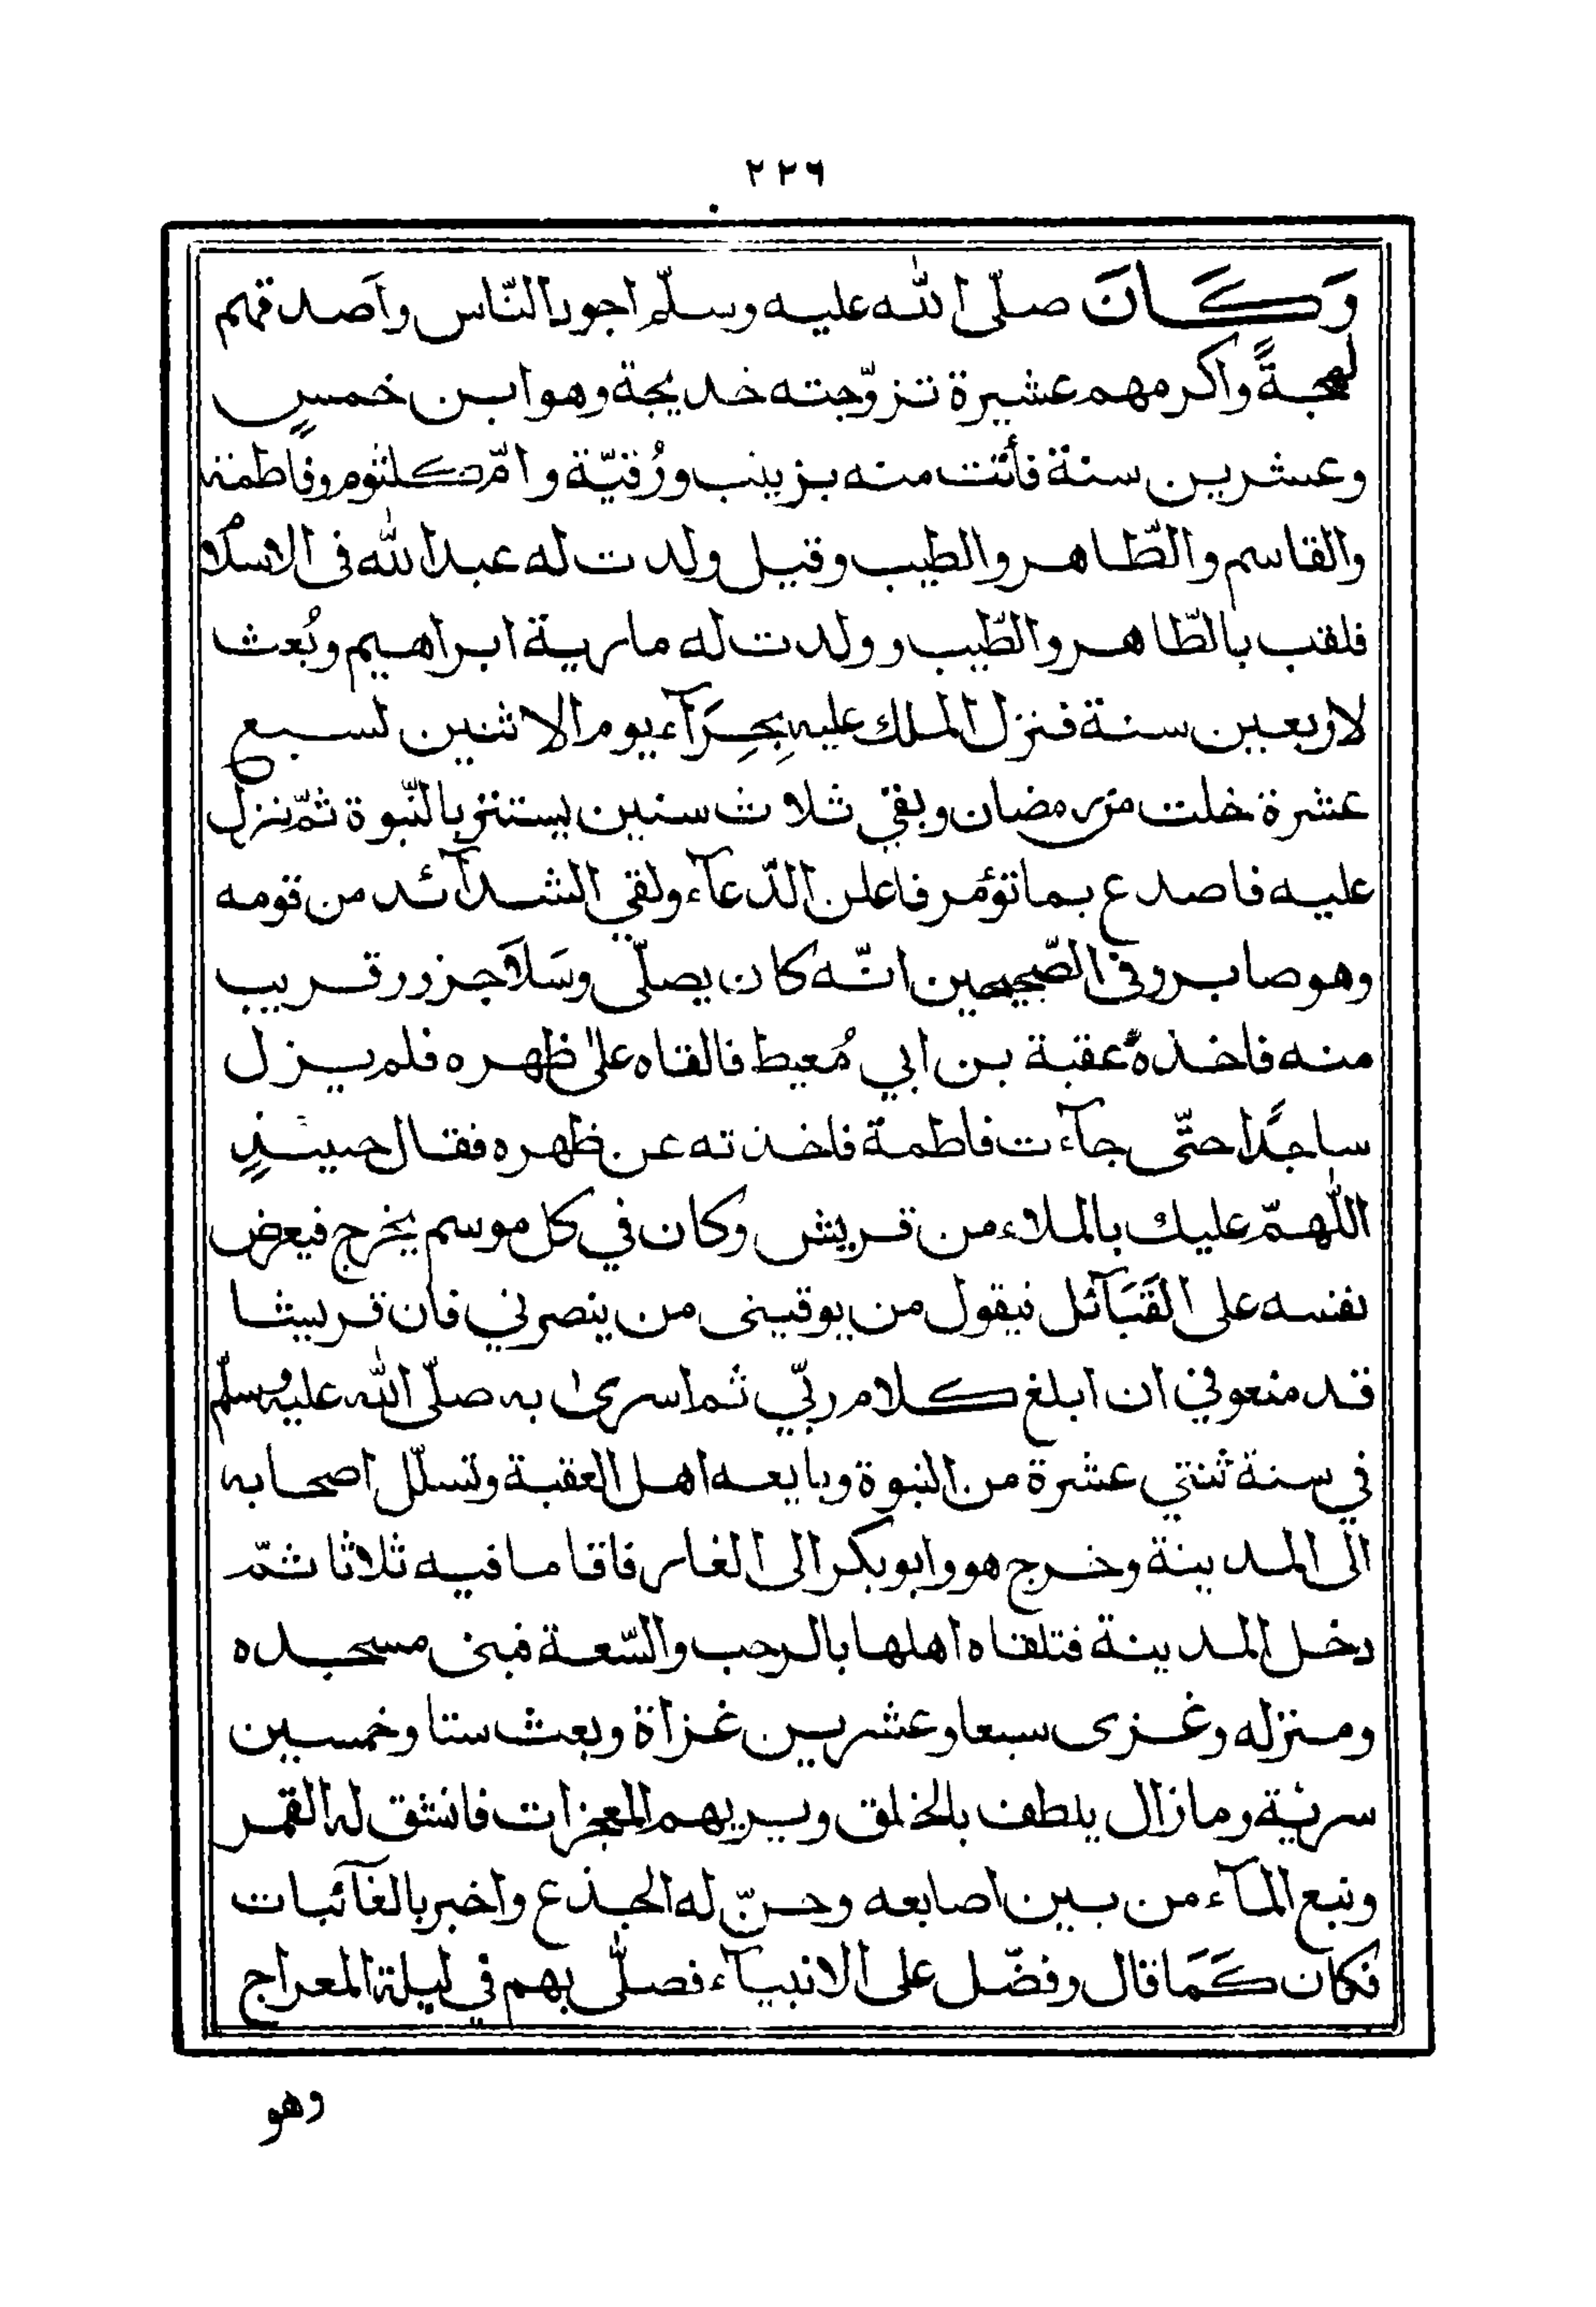 ٢٢٦
وَكَانَ صلّى اللّٰه عليه وسلّم اجود النّاس واَصدقهم
لهجةً واكرمهم عشيرة تزوّجته خديجة وهو ابن خمسٍ
وعشرين سنة فأتت منه بزينب ورُقيّة وامّ كلثوم وفاطمة
والقاسم والطّاهر والطيب وقيل ولدت له عبد اللّٰه فى الاسلام
فلقب بالطّاهر والطّيب وولدت له مارية ابراهيم وبُعث
لاربعين سنة فنزل الملك عليه بِحِرَآء يوم الاثنين لسبع
عشرة خلت من رمضان وبقي ثلاث سنين يستتر بالنّبوة ثمّ نزل
عليه فاصدع بما تؤمر فاعلن الدّعآء ولقي الشدآئد من قومه
وهو صابر وفي الصّحيحين انّه كان يصلّي وسَلاَ جزور قريب
منه فاخذهُ عقبة بن ابي مُعيط فالقاه علىٰ ظهره فلم يزل
ساجدًا حتّى جآءت فاطمة فاخذته عن ظهره فقال حينئذٍ
اللّٰهمّ عليك بالملاء من قريش وكان في كل موسم يخرج فيعرض
نفسه على القَبَآئل فيقول من يوقيني من ينصرني فان قريشا
قد منعوني ان ابلغ كلام ربّي ثم اسرىٰ به صلّى اللّٰه عليه وسلّم
في سنة ثنتي عشرة من النبوة وبايعه اهل العقبة وتسلّل اصحابه
الى المدينة وخرج هو وابوبكر الى الغار فاقاما فيه ثلاثا ثمّ
دخل المدينة فتلقاه اهلها بالرحب والسّعة فبنى مسجده
ومنزله وغزى سبعا وعشرين غزاة وبعث ستا وخمسين
سريّة وما زال يلطف بالخلق ويريهم المعجزات فانشق له القمر
ونبع المآء من بين اصابعه وحنّ له الجذع واخبر بالغآئبات
فكان كَمَا قال وفضّل على الانبيآء فصلّى بهم في ليلة المعراج
وهو